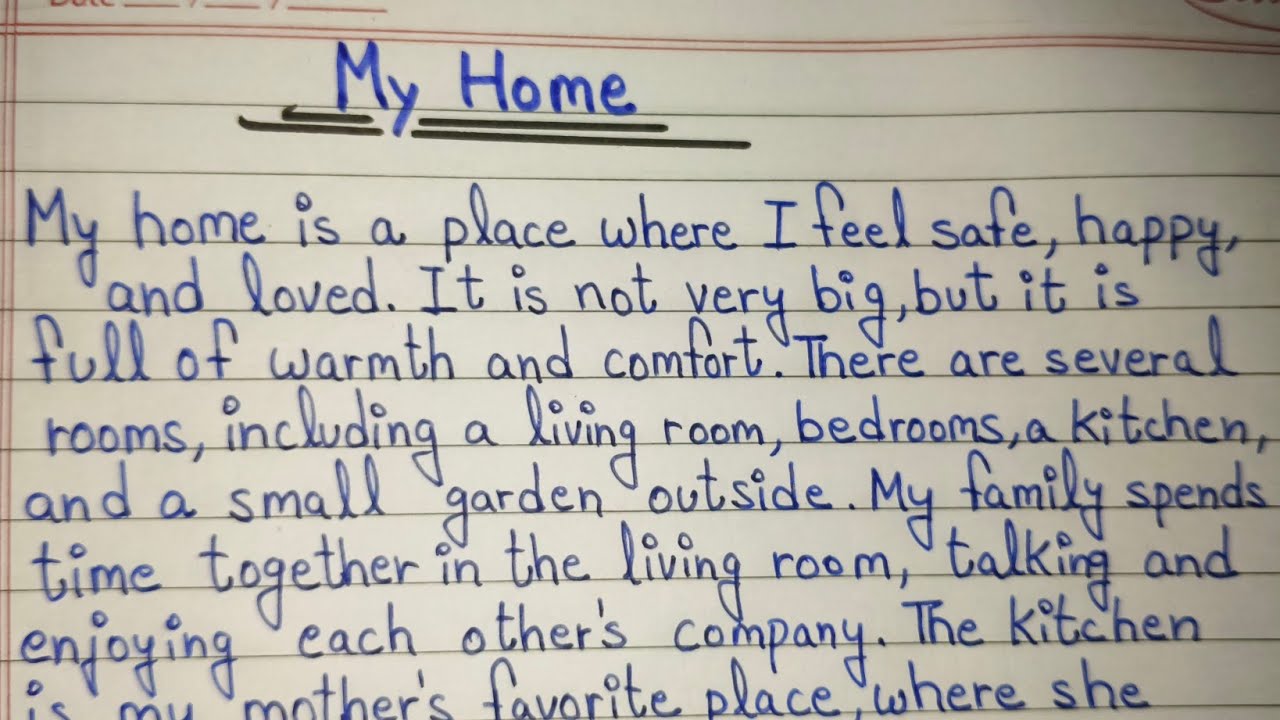 Date
My Home
My home is a place where I feel safe, happy,
and loved. It is not very big, but it is
full of warmth and comfort. There are several
rooms, including a living room, bedrooms, a kitchen,
and a small garden outside. My family spends
time together in the living room, talking and
enjoying each other's company. The kitchen
is my mother's favorite place, where she